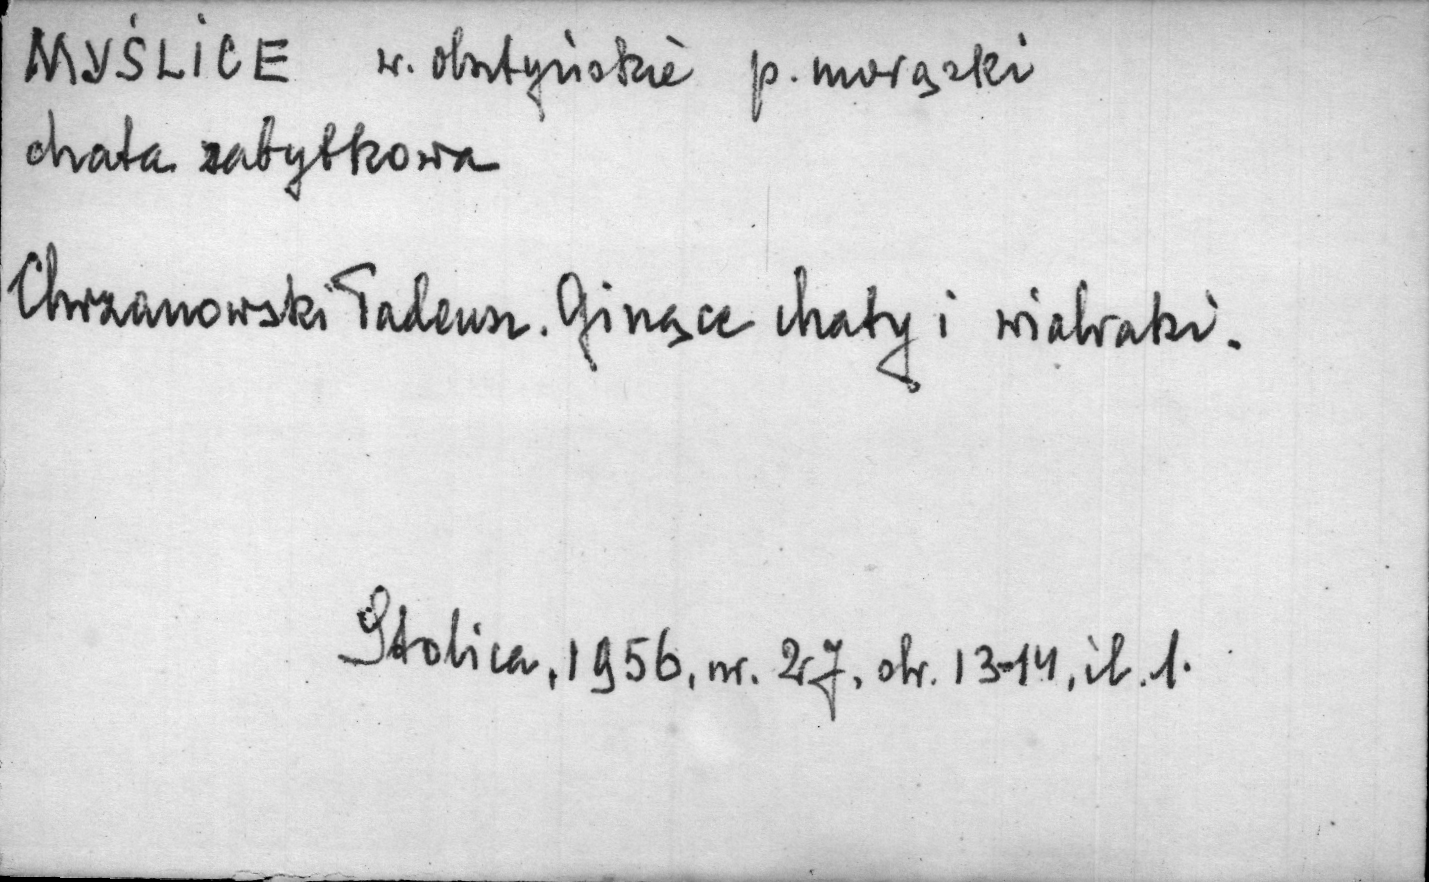 MYŚLICE w. olsztyńskie p. morąski
chata zabytkowa
Chrzanowski Tadeusz. Ginące chaty i wiatraki.
Stolica, 1956, nr. 27, str. 13-14, il. 1.